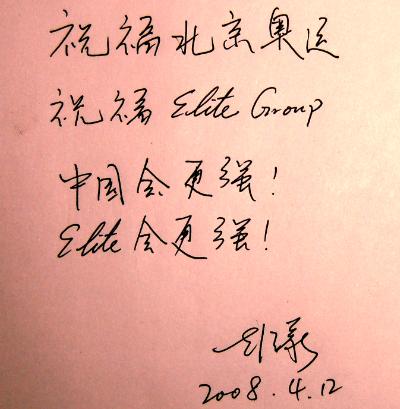 祝福北京奥运
祝福 Elite Group
中国会更强！
Elite 会更强！
2008.4.12